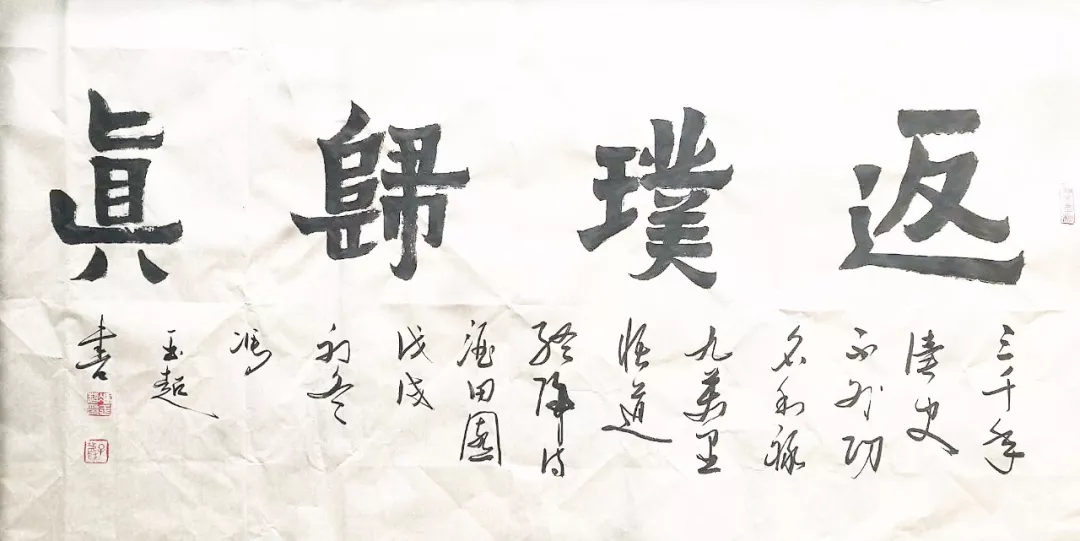 返璞歸眞
三千年
读史
不外功
名利祿
九萬里
悟道
終歸诗
酒田園
戊戌
初冬
馮
書